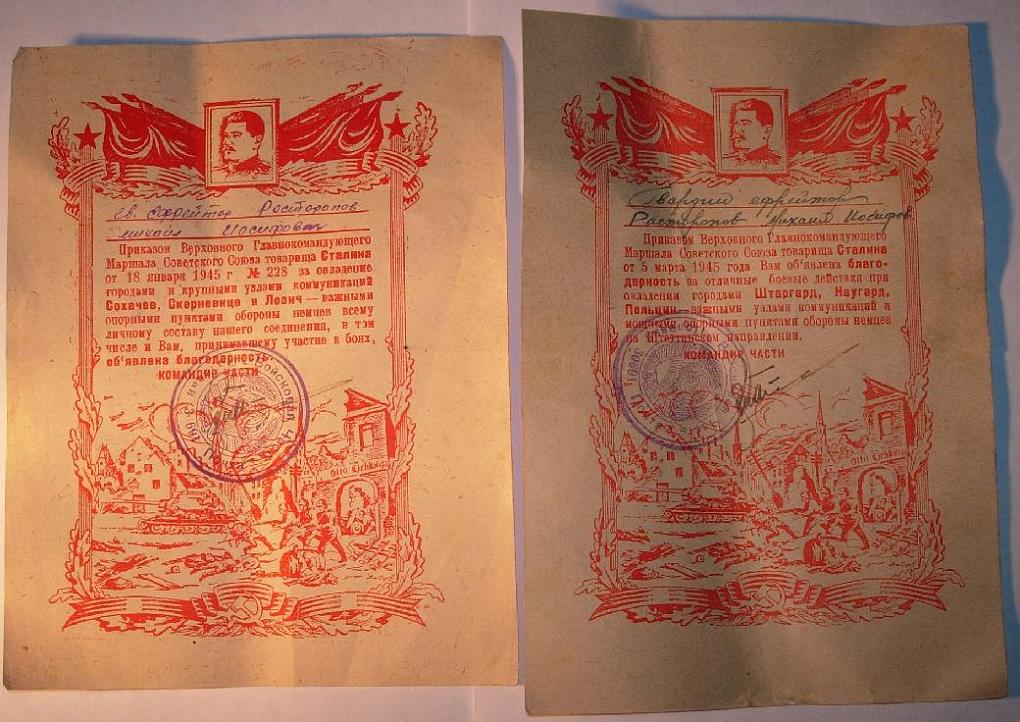 гв. ефрейтор Расторопов
михаил Иосифович
Приказом Верховного Главнокомандующего
Маршала Советского Союза товарища Сталина
от 18 января 1945 г № 228 за овладение
городами и крупными узлами коммуникаций
Сохачев, Скерневице и Лович — важными
опорными пунктами обороны немцев всему
личному составу нашего соединения, в том
числе и Вам, принимавшему участие в боях,
объявлена благодарность.
КОМАНДИР ЧАСТИ
Гвардии ефрейтор
Расторопов Михаил Иосифов.
Приказом Верховного Главнокомандующего
Маршала Советского Союза товарища Сталина
от 5 марта 1945 года Вам об'явлена благо-
дарность за отличные боевые действия при
овладении городами Штаргард, Наугард,
Польцин—важными узлами коммуникаций и
мощными опорными пунктами обороны немцев
на Штеттинском направлении.
КОМАНДИР ЧАСТИ